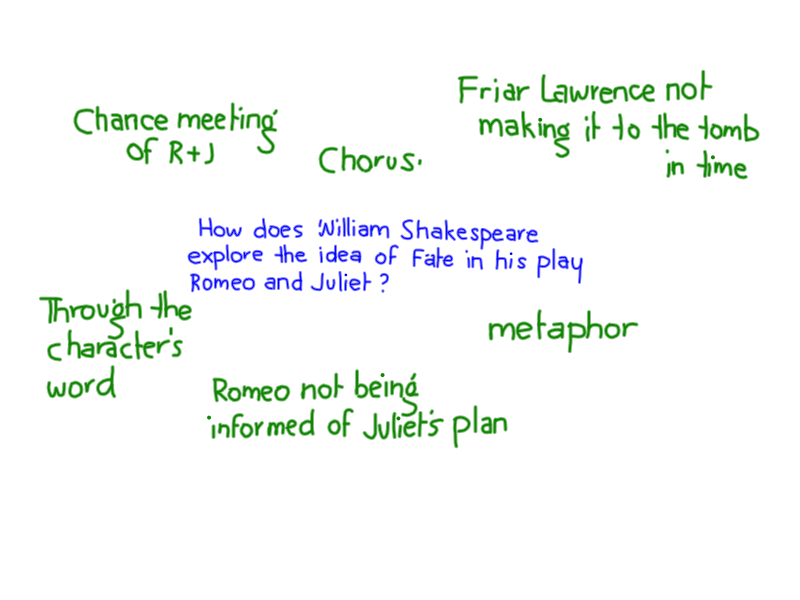 Chance meeting
of R+J
Chorus.
Friar Lawrence not
making it to the tomb
in time
How does William Shakespeare
explore the idea of Fate in his play
Romeo and Juliet?
Through the
character's
word
metaphor
Romeo not being
informed of Juliet's plan